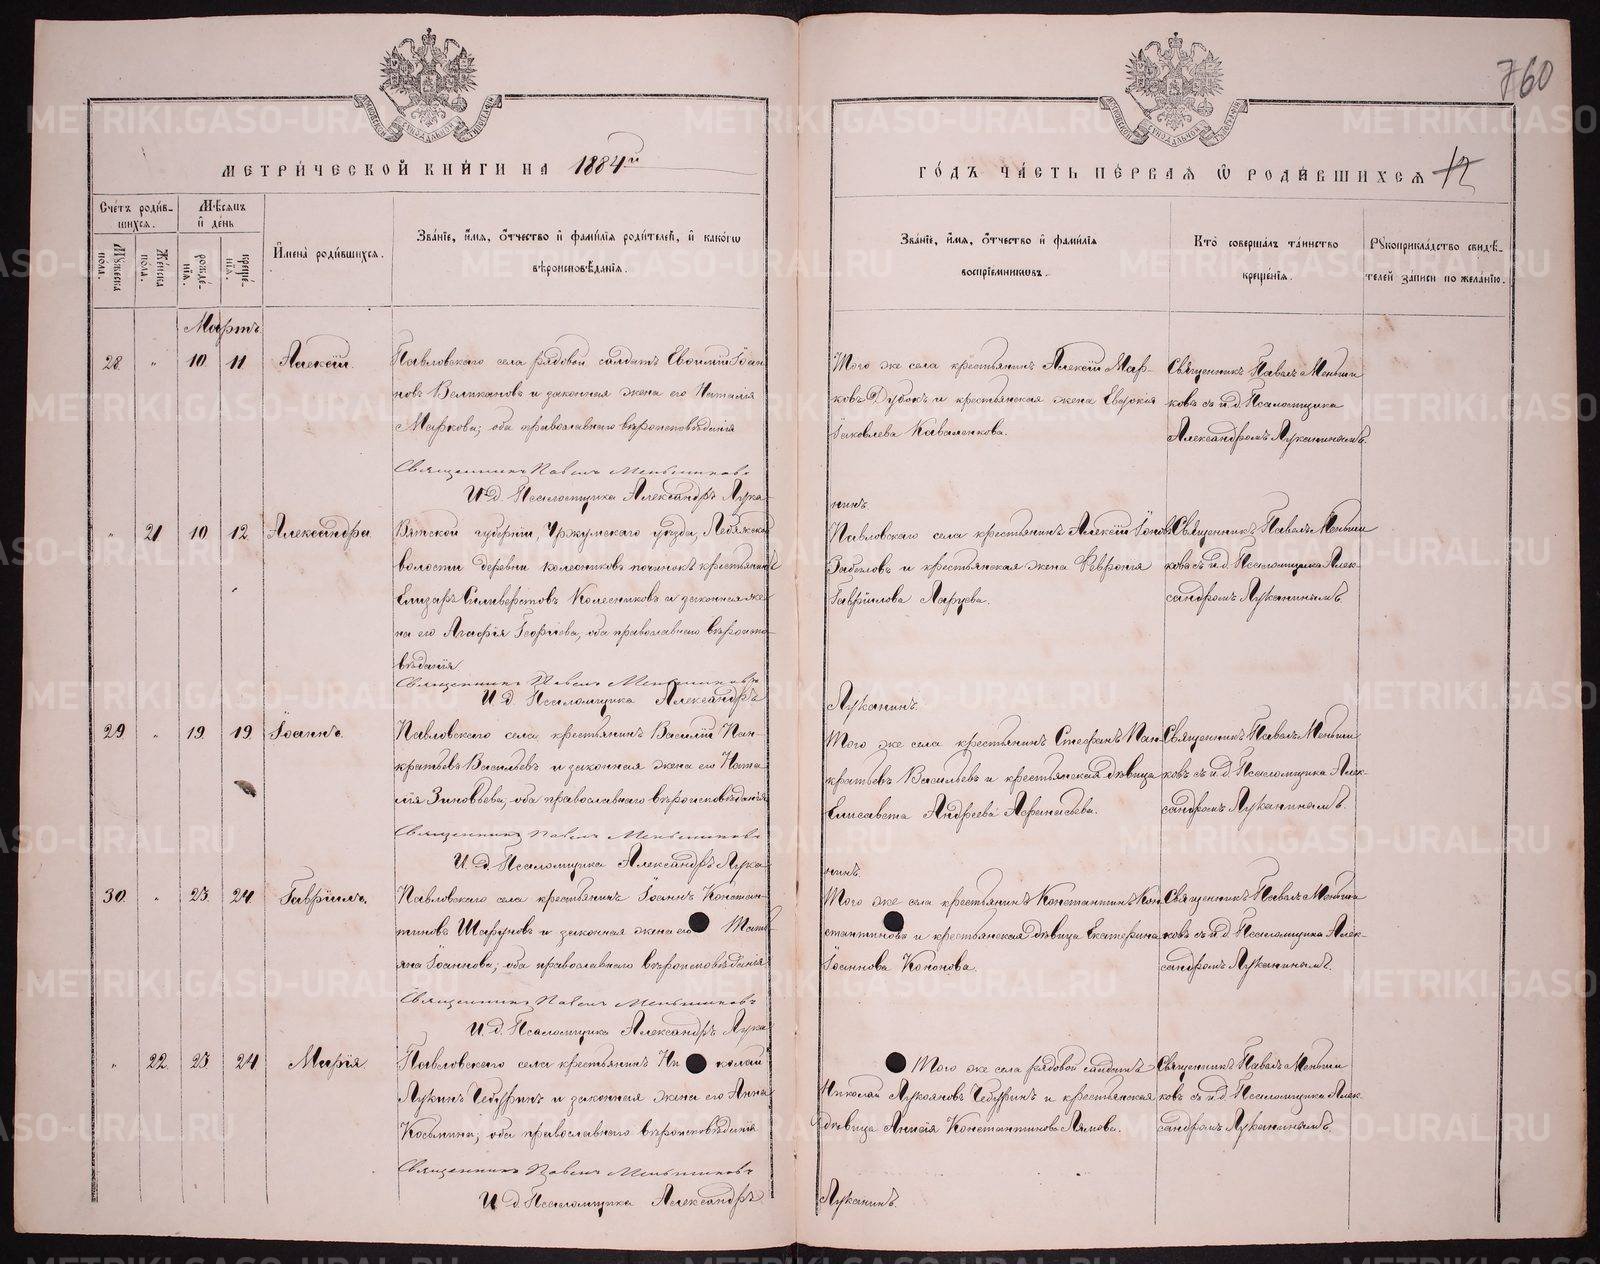 760
МЕТРИ́ЧЕСКОЙ КНИ́ГИ НА 1884й
ГО́ДЪ ЧА́СТЬ ПЕ́РВАЯ Ѡ РОДИ́ВШИХСЯ 12
Сче́тъ роди́в-
шихся.
Мѣсяцъ
и́ де́нь
Му́жеска
по́ла.
Же́нска
по́ла.
рожде́-
нїѧ.
креще́-
нїѧ.
И́мена̀ роди́вшихся.
Зва́нїе, и́мя, ѻ́тчество и́ фами́лїя роди́телей, и́ како́гѡ
вѣроисповѣ́данїя.
Зва́нїе, и́мя, ѻ́тчество и́ фами́лїя
воспрїе́мникѡвъ.
Кто̀ соверша́лъ та́инство
креще́нїя.
Рꙋкоприкла́дство свидѣ́-
телей за́писи по жела́нїю.
Мартъ
28. " 10 11 Алексій.
Павловскаго села рядовой солдатъ Евѳимій Іоан-
новъ Великановъ и законная жена его Наталія
Маркова; оба православнаго вѣроисповѣданія
Священникъ Павелъ Меньшиковъ
И. д. Псаломщика Александръ Лука-
Того же села крестьянинъ Алексій Мар-
ковъ Дубокъ и крестьянская жена Евдокія
Іаковлева Коваленкова.
нинъ.
Священникъ Павелъ Меньши
ковъ съ и.д. Псаломщика
Александромъ Луканинымъ.
" 21 10 12 Александра.
Вятской губерніи, Уржумскаго уѣзда, Лебяжской
волости деревни Колесниковъ починокъ крестьянинъ
Елизаръ Селиверстовъ Колесниковъ и законная же-
на его Агафія Георгіева, оба православнаго вѣроиспо-
вѣданія
Священникъ Павелъ Меньшиковъ
И. д. Псаломщика Александръ
Павловскаго села крестьянинъ Алексій Іоновъ
и крестьянская жена Ѳевронія
Гавріилова Ларцева.
Луканинъ.
Священникъ Павелъ Меньши
ковъ съ и.д. Псаломщика Алек-
сандромъ Луканинымъ.
29 " 19 19 Іоаннъ.
Павловскаго села, крестьянинъ Василій Пан-
кратьевъ Васильевъ и законная жена его Ната-
лія Зиновьева; оба православнаго вѣроисповѣданія
Священникъ Павелъ Меньшиковъ
И. д. Псаломщика Александръ Лука-
Того же села крестьянинъ Стефанъ Пан-
кратьевъ Васильевъ и крестьянская дѣвица
Елисавета Андреева Афанасьева.
нинъ.
Священникъ Павелъ Меньши
ковъ съ и.д. Псаломщика Алек-
сандромъ Луканинымъ.
30. " 23. 24 Гавріилъ.
Павловскаго села крестьянинъ Іоаннъ Констан-
тиновъ Шаруновъ и законная жена его Тать-
яна Іоаннова; оба православнаго вѣроисповѣданія
Священникъ Павелъ Меньшиковъ
И. д. Псаломщика Александръ Лука-
Того же села крестьянинъ Константинъ Кон-
стантиновъ и крестьянская дѣвица Екатерина
Іоаннова Кононова.
нинъ.
Священникъ Павелъ Меньши
ковъ съ и.д. Псаломщика Алек-
сандромъ Луканинымъ.
" 22. 23 24 Марія.
Павловскаго села крестьянинъ Николай
Лукинъ Чебуринъ и законная жена его Анна
Косьмина; оба православнаго вѣроисповѣданія
Священникъ Павелъ Меньшиковъ
И. д. Псаломщика Александръ
Того же села рядовой солдатъ
Николай Лукояновъ Чебуринъ и крестьянская
дѣвица Анисія Константинова Лямова.
Луканинъ.
Священникъ Павелъ Меньши
ковъ съ и.д. Псаломщика Алек-
сандромъ Луканинымъ.
METRIKI.GASO-URAL.RU